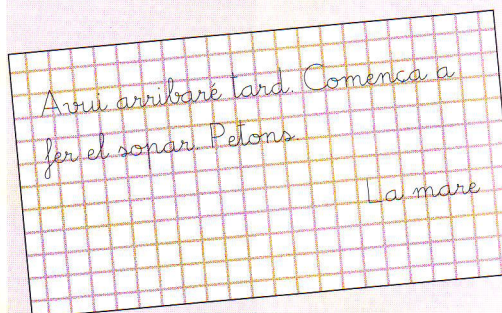 Avui arribaré tard. Comença a
fer el sopar. Petons.
La mare